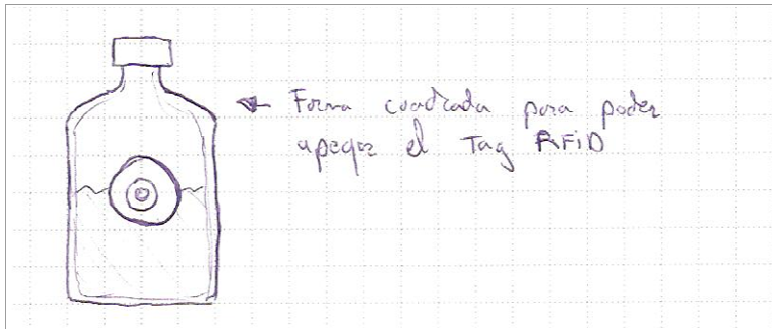 Forma cuadrada para poder
apegar el Tag RFiD